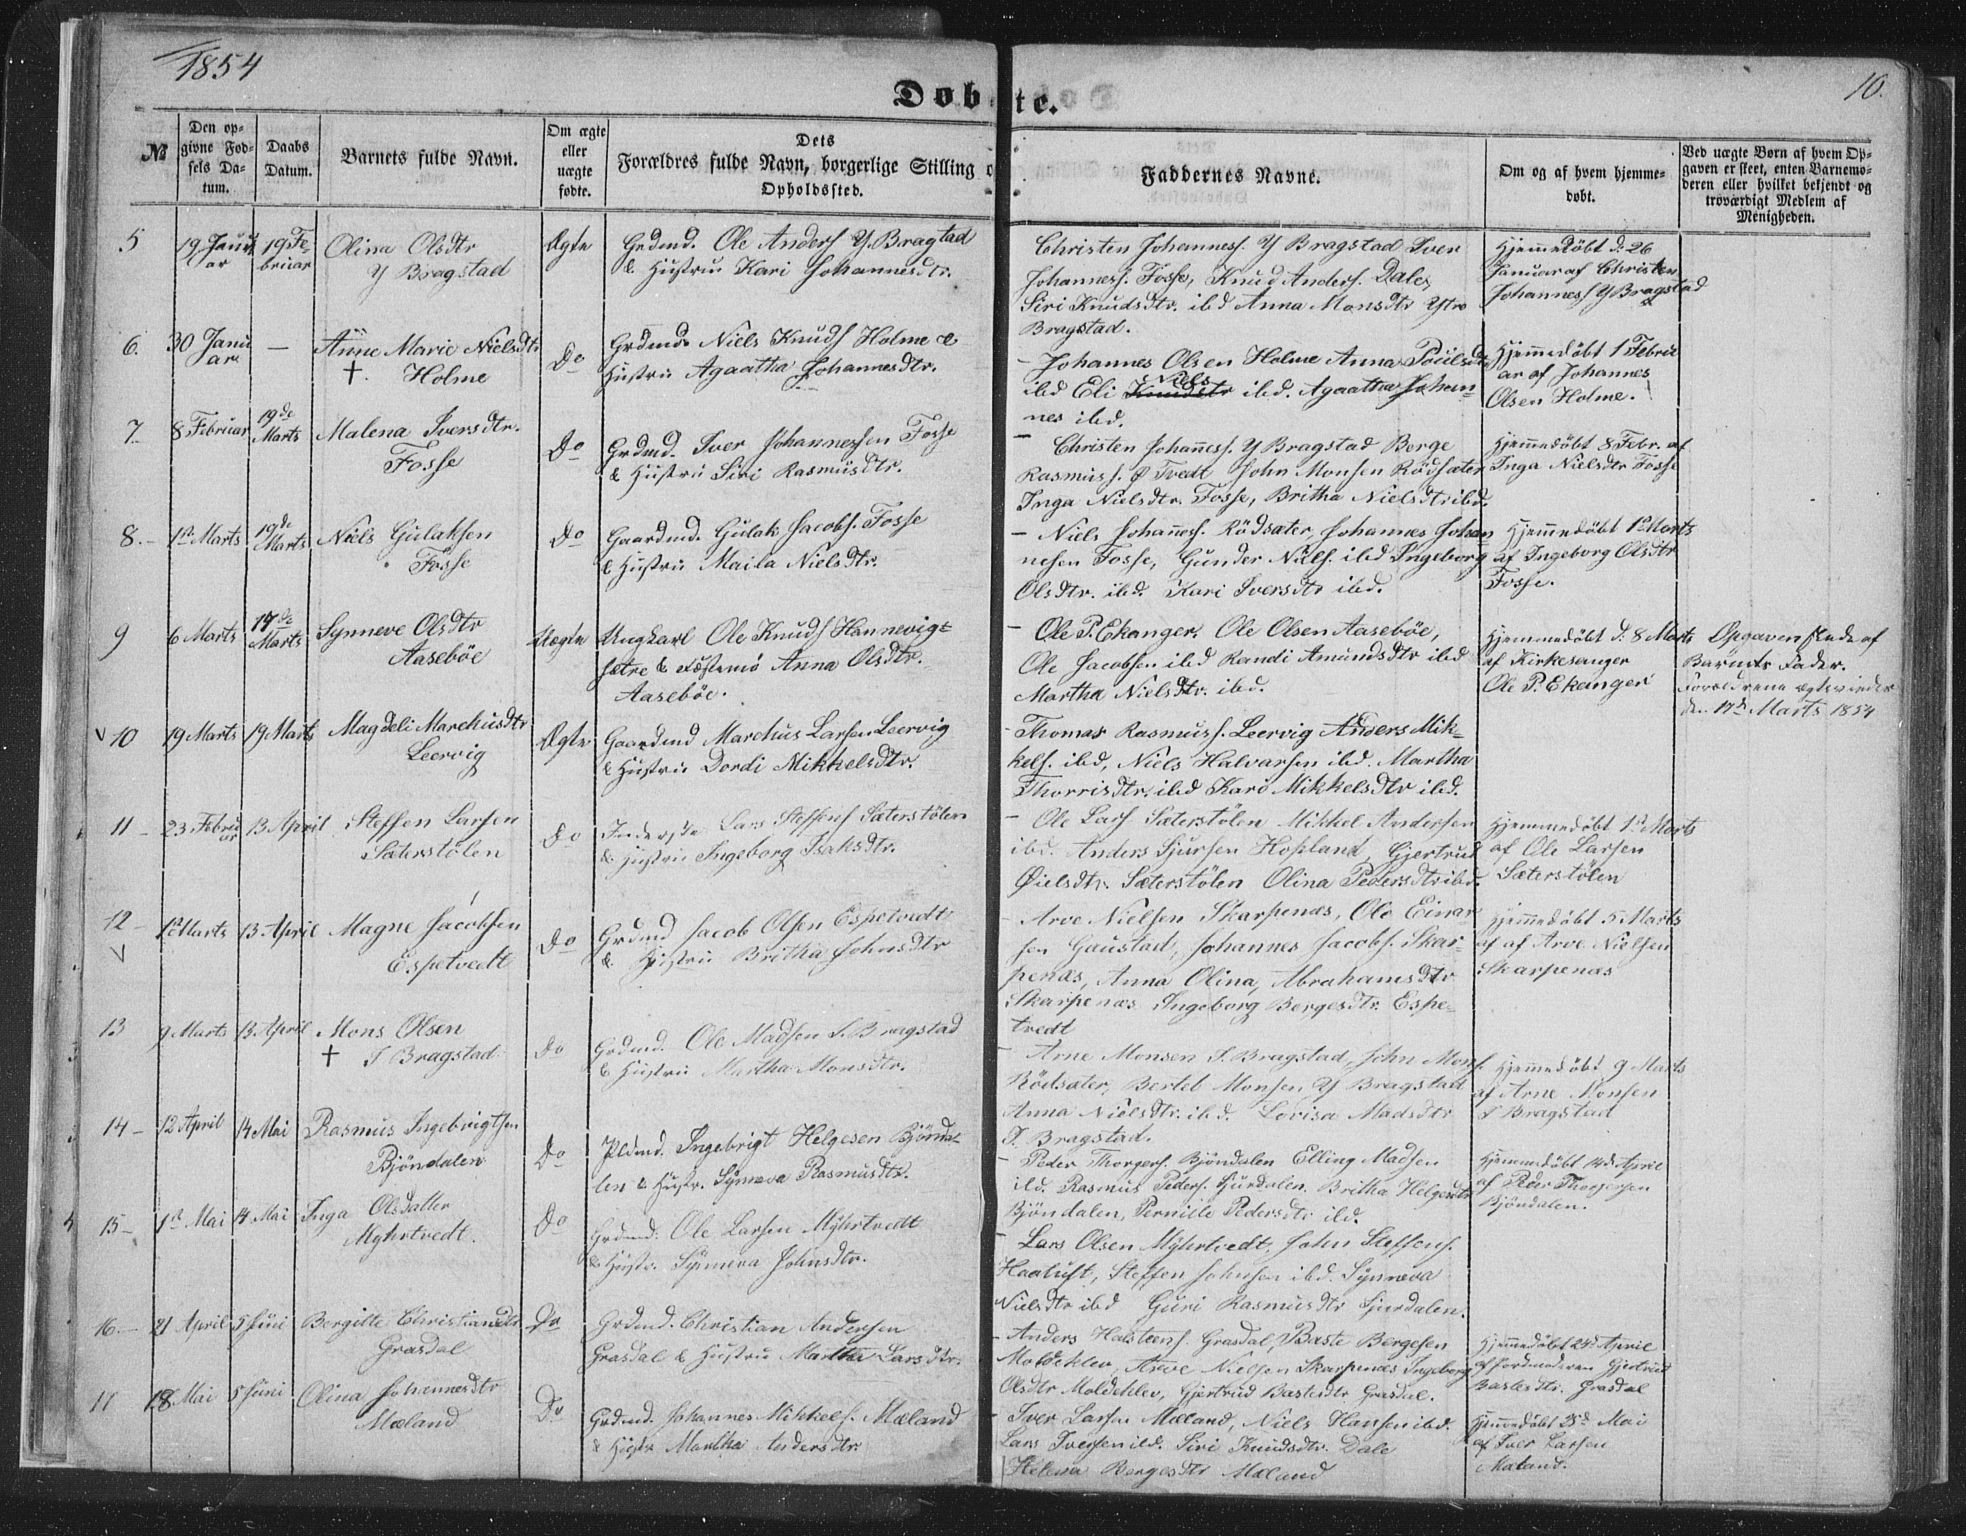 1854
10.
Døbte.
№
Den op-
givne Fød-
sels Da-
tum.
Daabs
Datum.
Barnets fulde Navn.
Om ægte
eller
uægte
fødte.
Dets
Forældres fulde Navn, borgerlige Stilling o
Opholdssted.
Faddernes Navne.
Om og af hvem hjemme-
døbt.
Ved uægte Børn af hvem Op-
gaven er skeet, enten Barnemo-
deren eller hvilket bekjendt og
troværdigt Medlem af
Menigheden.
5
19 Janu
ar
19 Fe
bruar
Olina Olsdtr
Y Bragstad
Ægte
Grdmd. Ole Anders Y. Bragtad
& Hustru Kari Johannesdtr.
Christen Johannes. Y Bragstad Iver
Johannes. Fosse, Knud Anders. Dale,
Siri Knudsdtr. ibd Anna Monsdtr Ytre
Bragstad.
Hjemmedøbt d. 26
Januar af Christen
Johanness Y Bragstad
6.
30 Janu
ar
—
Anne Marie Nielsdtr
† Holme
Do
Grdmd. Niels Knuds Holme &
Hustru Agaatha Johannesdtr.
- Johannes Olsen Holme Anna Poulsdtr
ibd Eli Knudsdtr Niels ibd. Agaatha Johan-
nes ibd.
Hjemmedøbt 1 Febru
ar af Johannes
Olsen Holme.
7.
8 Februar
19de
Marts
Malena Iversdtr.
Fosse
Do
Grdmd. Iver Johannessen Fosse
& Hustru Siri Rasmusdtr.
- Christen Johanness. Y Bragstad Berge
Rasmuss. Ø Tvedt John Monsen Rödsæter
Inga Nielsdtr. Fosse, Britha Nielsdtr ibd.
Hjemmedøbt 8 Febr. af
Inga Nielsdtr Fosse
8.-
1ste Marts
19de
Marts
Niels Gulaksen
Fosse
Do
Gaardmd. Gulak Jacobs. Fosse
& Hustru Maila Nielsdtr.
- Niels Johaness. Rödsæter, Johannes Johan
nesen Fosse, Gunder Niels. ibd Ingeborg
Olsdtr. ibd. Kari Iversdtr ibd.
Hjemmedøbt 1ste Marts
af Ingeborg Olsdtr
Fosse.
9
6 Marts
17de
Marts
Synneve Olsdtr
Aaseböe
Uægte
Ungkarl Ole Knuds Hannevig-
sætre & Anna Olsdtr.
Aaseböe.
- Ole P. Ekanger. Ole Olsen Aaseböe,
Ole Jacobsen ibd Randi Amundsdtr ibd
Martha Nielsdtr. ibd.
Hjemmedøbt d. 8 Marts
af Kirkesanger
Ole P. Ekanger
Opgaven skede af
Barnets Fader.
Forældrene ægteviedes
den 17de Marts 1854
v 10
19 Marts
19 Marts
Magdeli Marchusdtr
Leervig
Ægte
Gaardmd Marchus Larsen Leervig
& Hustru Dordi Mikkelsdtr.
- Thomas Rasmuss. Leervig Anders Mik-
kels. ibd, Niels Halvarsen ibd. Martha
Thorrisdtr. ibd Kari Mikkelsdtr ibd.
11 -
23 Febru
ar
13 April
Steffen Larsen
Sæterstölen
Do
Inderste Lars Steffens Sæterstölen
& Hustru Ingeborg Isaksdtr.
- Ole Lars Sæterstölen Mikkel Andersen
ibd. Anders Sjursen Hopland, Gjertrud
Øielsdtr. Sæterstölen Olina Pedersdtr ibd.
Hjemmedøbt 1ste Marts
af Ole Larsen
Sæterstölen
12 -
v
1ste Marts
13 April
Magne Jacobsen
Espetvedt
Do
Grdmd Jacob Olsen Espetvedt
& Hustru Britha Johnsdtr
- Arve Nielsen Skarpenæs, Ole Einar
sen Gaustad, Johannes Jacobs. Skar-
penæs, Anna Olina Abrahamsdtr
Skarpenæs Ingeborg Bergesdtr. Espe-
tvedt
Hjemmedøbt 5 Marts
af af Arve Nielsen
Skarpenæs
13
9 Marts
13 April
Mons Olsen
† I Bragstad
Do
Grdmd. Ole Madsen I. Bragstad
& Hustru Martha Monsdtr.
- Arne Monsen I. Bragstad, John Mons.
Rödsæter, Berteb Monsen, Y Bragstad
Anna Nielsdtr. ibd. Lovisa Madsdtr
I. Bragstad.
Hjemmedøbt 9 Marts
af Arne Monsen
I Bragstad
14 -
12 April
14 Mai
Rasmus Ingebrigtsen
Bjöndalen
Do
Pldmd. Ingebrigt Helgesen Bjönda-
len & Hustr. Synneva Rasmusdtr.
- Peder Thorgers. Bjöndalen Elling Madsen
ibd. Rasmus Peders. Sjurdalen. Britha Helgesdtr
Bjöndalen, Pernille Pedersdtr ibd.
Hjemmedøbt 14de April
af Peder Thorgersen
Bjöndalen.
15 -
1ste Mai
14 Mai
Inga Olsdatter
Myhrtvedt.
Do
Grdmd. Ole Larsen Myhrtvedt
& Hustr. Synneva Johnsdtr.
- Lars Olsen Myhrtvedt, John Steffens.
Haatuft, Steffen Johnsen ibd. Synneva
Nielsdtr ibd Guri Rasmusdtr Sjurdalen.
16.-
21 April
5 Juni
Bergitte Christiansdtr
Grasdal
Do
Grdmd. Christian Andersen
Grasdal & Hustru Martha Larsdtr.
- Anders Halsteens. Grasdal, Baste Bergesen
Moldeklev, Arve Nielsen Skarpenæs Ingeborg
Olsdtr Moldeklev, Gjertrud Bastesdtr Grasdal.
Hjemmedøbt 24de April
af Jordmoderen Gjertrud
Bastesdtr. Grasdal
17
18 Mai
5 Juni
Olina Johannesdtr
Mæland
Do
Grdmd. Johannes Mikkels. Mæland
& Hustr Martha Andersdtr.
- Iver Larsen Mæland, Niels Hansen ibd.
Lars Iversen ibd. Siri Knudsdtr. Dale
Helena Bergesdtr Mæland
Hjemmedøbt 25de Mai
af Iver Larsen
Mæland.